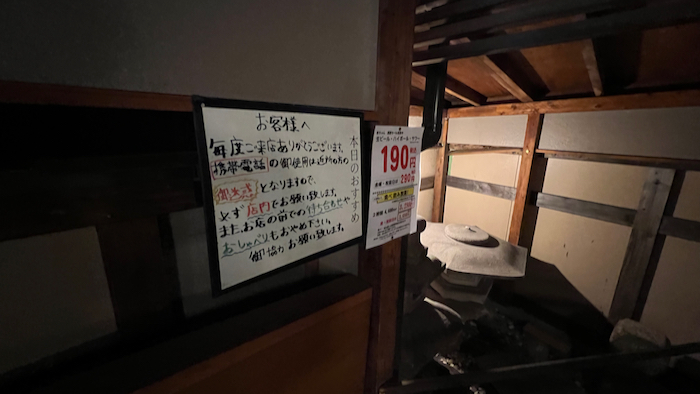 お客様へ
毎度ご来店ありがとうございます。
携帯電話の御使用は近所の方の
御迷惑となりますので、
必ず店内でお願い致します。
また、お店の前での待ち合せや
おしゃべりもおやめ下さい。
御協力お願い致します。
本日のおすすめ
生ビール・ハイボール・サワー
190円
290円